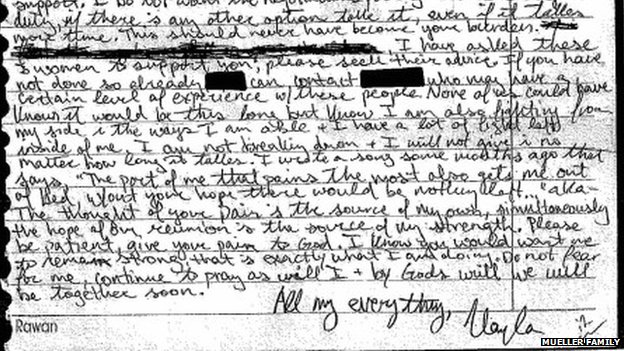 support. I do not want the
duty, if there is any other option take it, even if it takes
more time. This should never have become your burden.
I have asked these
women to support you; please seek their advice. If you have
not done so already can contact who may have a
certain level of experience w/ these people. None of us could have
known it would be this long but know I am also fighting from
my side in the ways I am able + I have a lot of fight left
inside of me. I am not breaking down + I will not give in no
matter how long it takes. I wrote a song some months ago that
says, "The part of me that pains the most also gets me out
of bed, w/out your hope there would be nothing left..." aka-
The thought of your pain is the source of my own, simultaneously
the hope of our reunion is the source of my strength. Please
be patient, give your pain to God. I know you would want me
to remain strong. That's exactly what I am doing. Do not fear
for me, continue to pray as will I + by Gods will we will
be together soon.
All my everything,
Kayla
Rawan
MUELLER FAMILY